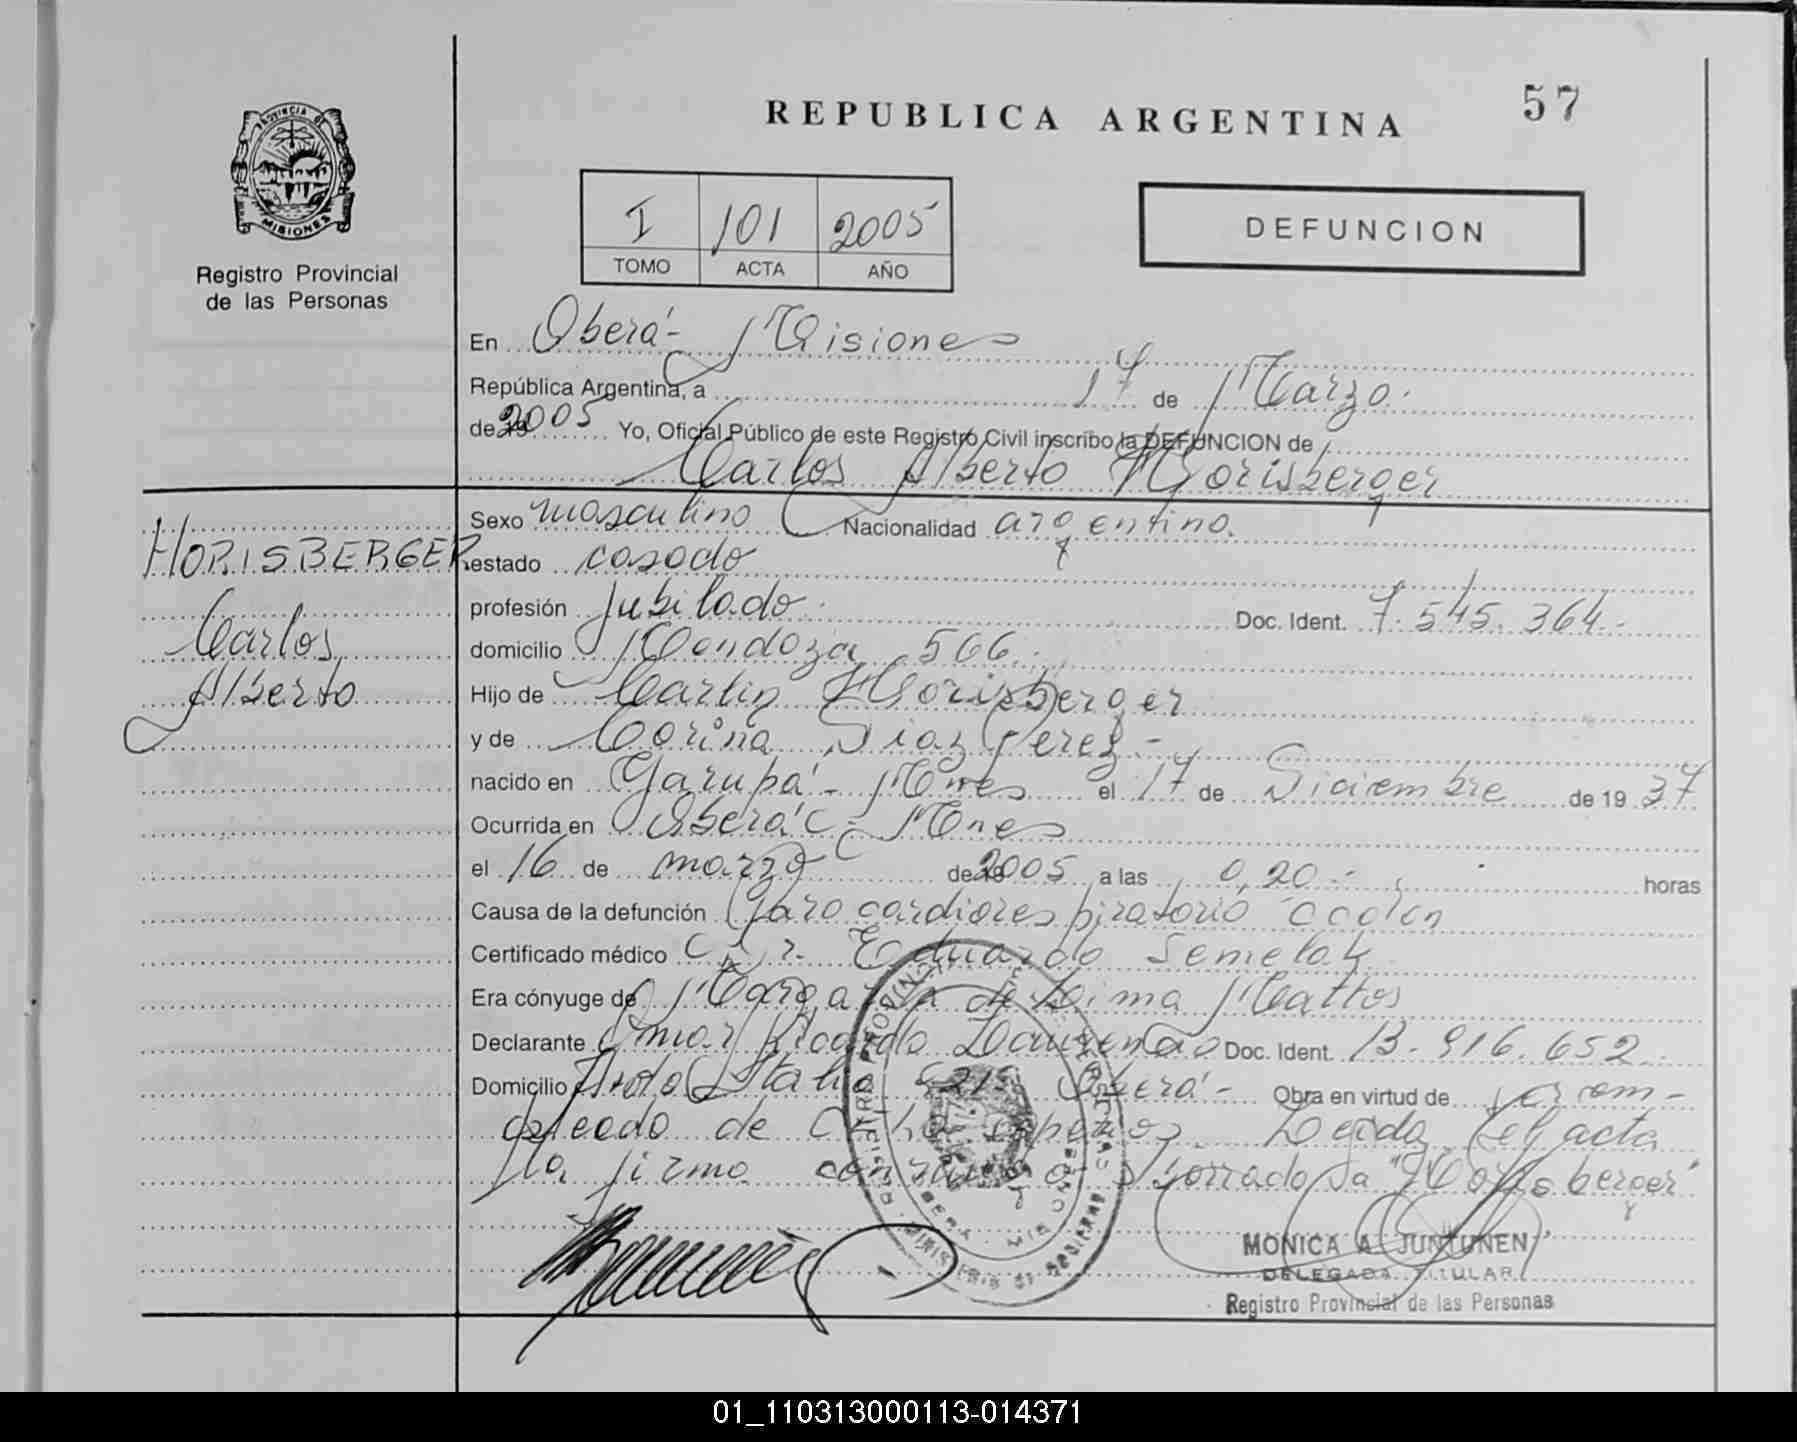 PROVINCIA DE
MISIONES
Registro Provincial
de las Personas
REPUBLICA ARGENTINA
57
I 101 2005
TOMO ACTA AÑO
DEFUNCION
En Oberá - Misiones
República Argentina, a 17 de Marzo.
de 2005 Yo, Oficial Público de este Registro Civil inscribo la DEFUNCION de
Carlos Alberto Horisberger
HORISBERGER
Carlos
Alberto
Sexo masculino Nacionalidad argentino.
estado casado
profesión Jubilado. Doc. Ident. 7.545.364.-
domicilio Mendoza 566.-
Hijo de Martin Horisberger
y de Corina Diaz Perez -
nacido en Garupá - Mnes el 17 de Diciembre de 19 37
Ocurrida en Oberá - Mnes
el 16 de marzo de 2005 a las 0,20.- horas
Causa de la defunción Paro cardiorespiratorio
Certificado médico Dr. Eduardo Semelak
Era cónyuge de Margarita de Lima Mattos
Declarante Omar Ricardo Doc. Ident. 13.916.652.-
Domicilio Oberá - Obra en virtud de ser em-
pleado de Leida el acta
la firma "Horisberger"
MONICA A. JUNTUNEN
DELEGADA TITULAR
Registro Provincial de las Personas
01_110313000113-014371